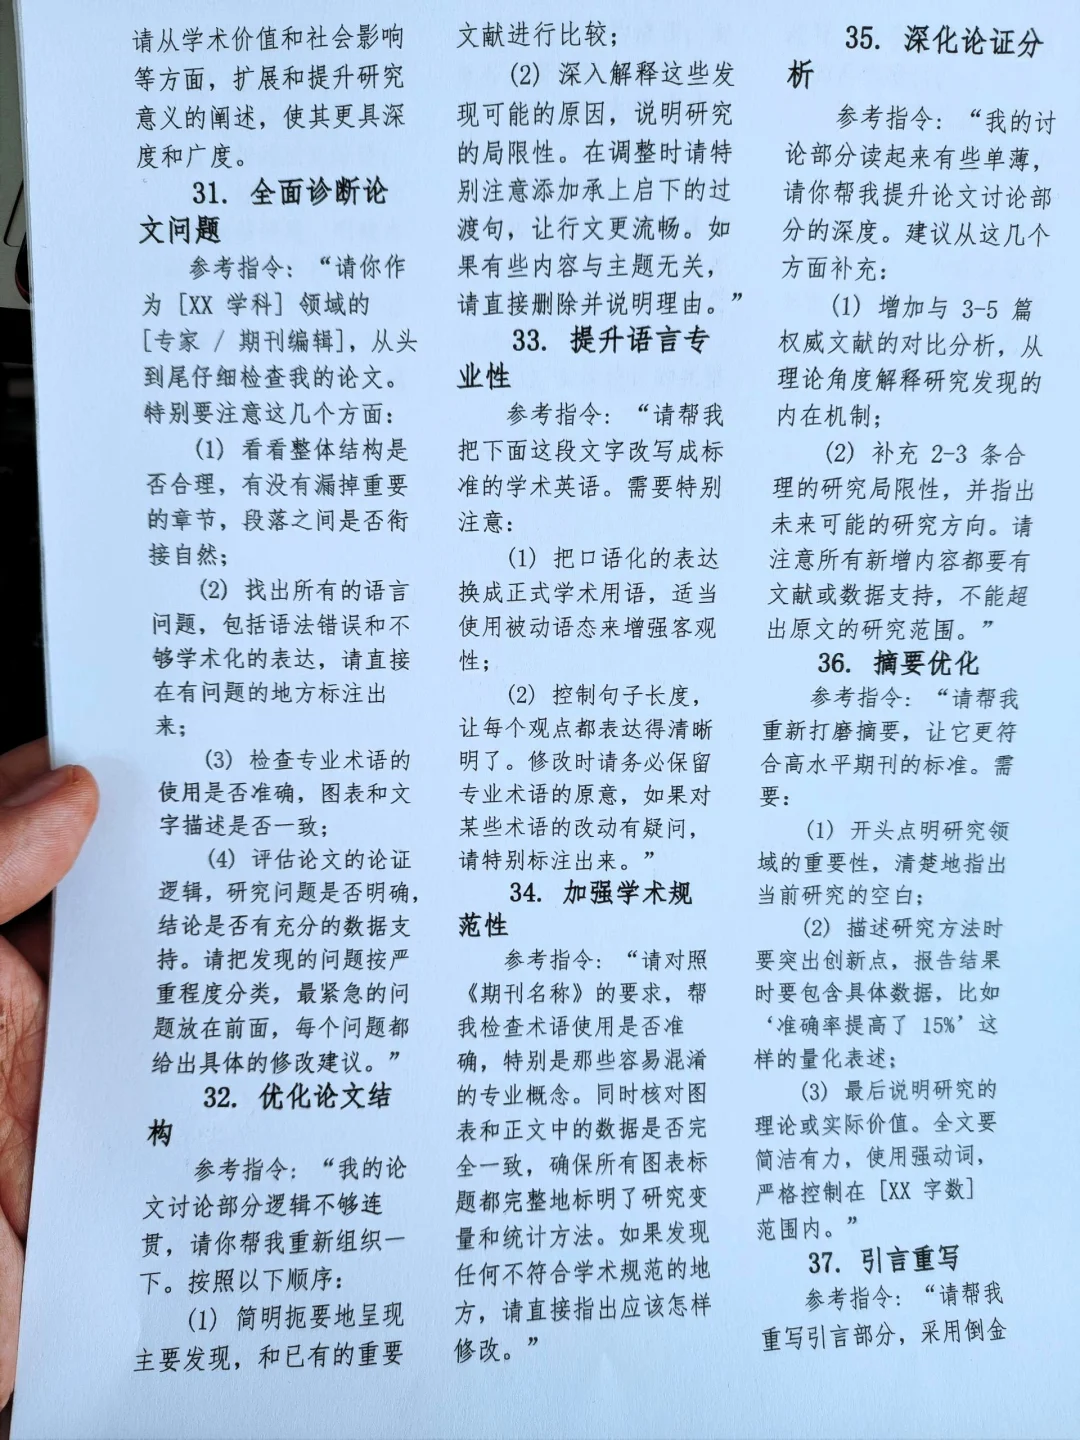 请从学术价值和社会影响
等方面，扩展和提升研究
意义的阐述，使其更具深
度和广度。
31. 全面诊断论
文问题
参考指令：“请你作
为 [XX 学科] 领域的
[专家 / 期刊编辑]，从头
到尾仔细检查我的论文。
特别要注意这几个方面：
(1) 看看整体结构是
否合理，有没有漏掉重要
的章节，段落之间是否衔
接自然；
(2) 找出所有的语言
问题，包括语法错误和不
够学术化的表达，请直接
在有问题的地方标注出
来；
(3) 检查专业术语的
使用是否准确，图表和文
字描述是否一致；
(4) 评估论文的论证
逻辑，研究问题是否明确，
结论是否有充分的数据支
持。请把发现的问题按严
重程度分类，最紧急的问
题放在前面，每个问题都
给出具体的修改建议。”
32. 优化论文结
构
参考指令：“我的论
文讨论部分逻辑不够连
贯，请你帮我重新组织一
下。按照以下顺序：
(1) 简明扼要地呈现
主要发现，和已有的重要
文献进行比较；
(2) 深入解释这些发
现可能的原因，说明研究
的局限性。在调整时请特
别注意添加承上启下的过
渡句，让行文更流畅。如
果有些内容与主题无关，
请直接删除并说明理由。”
33. 提升语言专
业性
参考指令：“请帮我
把下面这段文字改写成标
准的学术英语。需要特别
注意：
(1) 把口语化的表达
换成正式学术用语，适当
使用被动语态来增强客观
性；
(2) 控制句子长度，
让每个观点都表达得清晰
明了。修改时请务必保留
专业术语的原意，如果对
某些术语的改动有疑问，
请特别标注出来。”
34. 加强学术规
范性
参考指令：“请对照
《期刊名称》的要求，帮
我检查术语使用是否准
确，特别是那些容易混淆
的专业概念。同时核对图
表和正文中的数据是否完
全一致，确保所有图表标
题都完整地标明了研究变
量和统计方法。如果发现
任何不符合学术规范的地
方，请直接指出应该怎样
修改。”
35. 深化论证分
析
参考指令：“我的讨
论部分读起来有些单薄，
请你帮我提升论文讨论部
分的深度。建议从这几个
方面补充：
(1) 增加与 3-5 篇
权威文献的对比分析，从
理论角度解释研究发现的
内在机制；
(2) 补充 2-3 条合
理的研究局限性，并指出
未来可能的研究方向。请
注意所有新增内容都要有
文献或数据支持，不能超
出原文的研究范围。”
36. 摘要优化
参考指令：“请帮我
重新打磨摘要，让它更符
合高水平期刊的标准。需
要：
(1) 开头点明研究领
域的重要性，清楚地指出
当前研究的空白；
(2) 描述研究方法时
要突出创新点，报告结果
时要包含具体数据，比如
‘准确率提高了 15%’这
样的量化表述；
(3) 最后说明研究的
理论或实际价值。全文要
简洁有力，使用强动词，
严格控制在 [XX 字数]
范围内。”
37. 引言重写
参考指令：“请帮我
重写引言部分，采用倒金